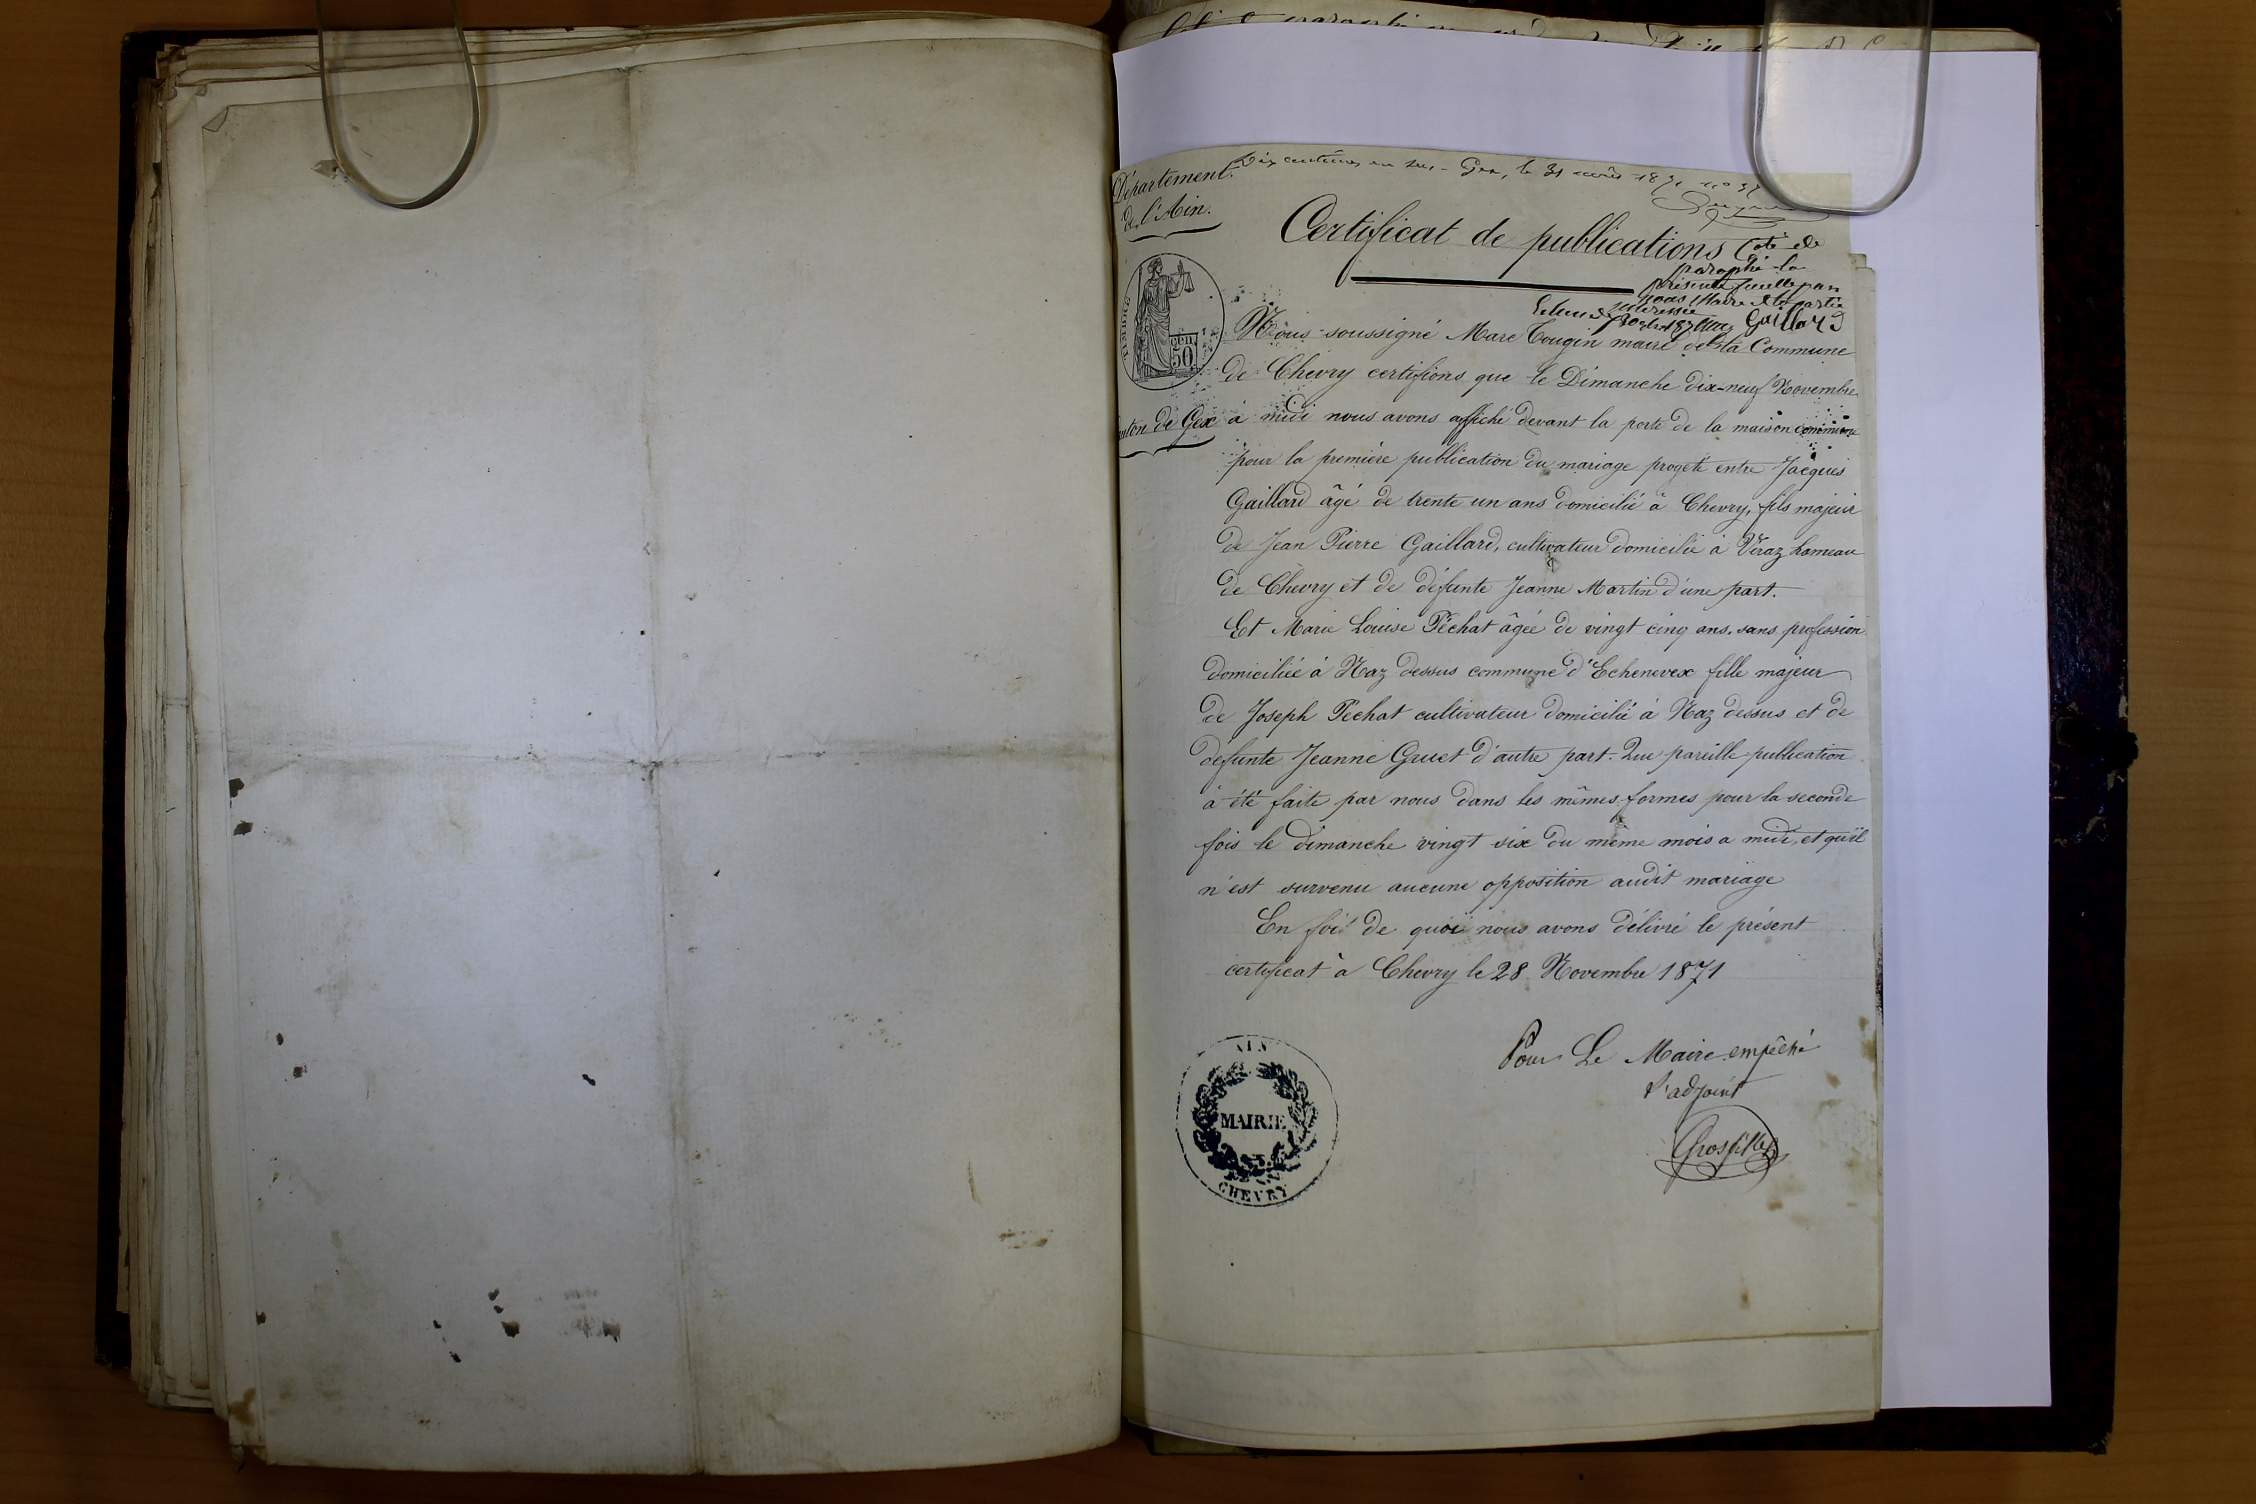 Département
de l'Ain.
Dix centimes en sus - Gex, le 31 1871 n°
Certificat de publications
Coté et
paraphé la
présente feuille par
nous Maire et la partie
intéressée
Gaillard
TIMBRE
50
Nous soussigné Marc Tougin maire de la Commune
de Chevry certifions que le Dimanche dix-neuf Novembre
Canton de Gex
à midi nous avons affiché devant la porte de la maison commune
pour la première publication du mariage progeté entre Jacques
Gaillard âgé de trente un ans domicilié à Chevry, fils majeur
de Jean Pierre Gaillard, cultivateur domicilié à Véraz hameau
de Chevry et de défunte Jeanne Martin d'une part.
Et Marie Louise Péchat âgée de vingt cinq ans, sans profession
domiciliée à Naz dessus commune d'Echenevex fille majeur
de Joseph Péchat cultivateur domicilié à Naz dessus et de
défunte Jeanne Gruet d'autre part. Que pareille publication
à été faite par nous dans les mêmes formes pour la seconde
fois le dimanche vingt six du même mois a midi, et qu'il
n'est survenu aucune opposition audit mariage
En foi de quoi nous avons délivré le présent
certificat à Chevry le 28 Novembre 1871
Pour Le Maire empêché
l'adjoint
Grosfilley
AIN
MAIRIE
CHEVRY